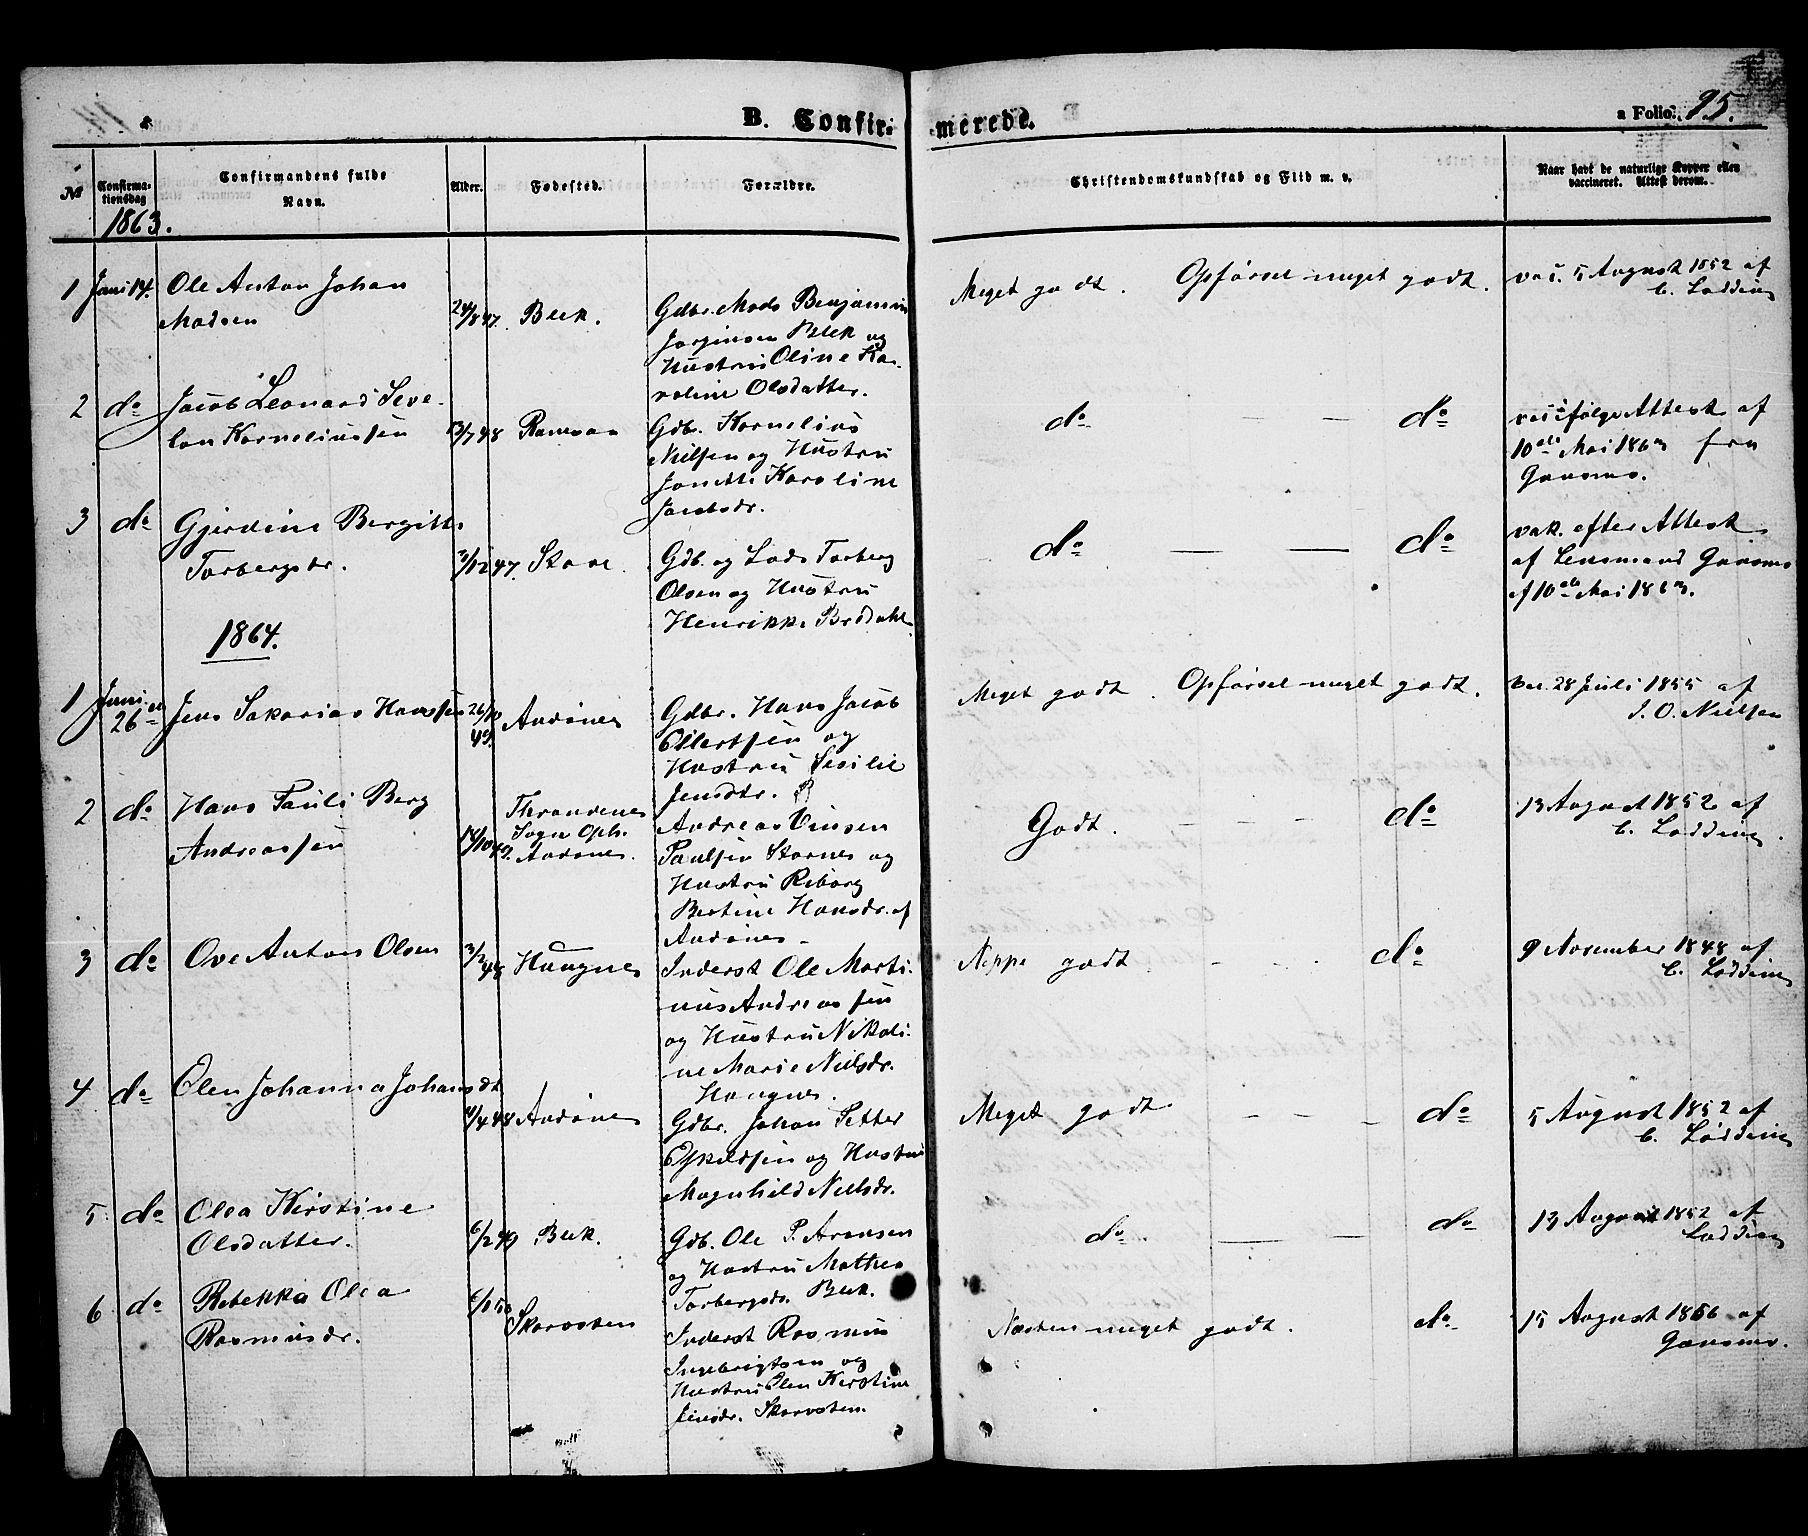 B. Confir-
merede.
a Folio. 95.
№
Confirma-
tionsdag
Confirmandens fulde
Navn.
Alder.
Fødested.
Forældre.
Christendomskundskab og Flid m. v.
Naar havt de naturlige Kopper eller
vaccineret. Attest derom.
1863.
1 Juni 14. Ole Anton Johan
Madsen
24/8 47. Beck.
Gdbr. Mads Benjamin
Jørginsen Beck og
Hustru Oline Ka-
roline Olsdatter.
Meget godt. Opførsel meget godt.
vac. 5 August 1852 af
C. Lødding
2 do Jacob Leonard Seve-
lon Korneliussen
13/7 48
Gdb. Kornelius
Nielsen og Hustru
Janette Karoline
Jacobsdr.
do — — do
Attest af
10de Mai 1863 fra
Gansmo.
3 do Gjerdine Bergitte
Torbergsdr.
3/12 47. Skove.
Gdb. og Lods Torberg
Olsen og Hustru
Henrikke Brodahl
do — — do
vak. efter Attest
af Lensmand Gansmo
af 10de Mai 1863.
1864.
1 Juni
26de Jens Sakarias Hanssen
26/10
49. Andønes
Gdbr. Hans Jacob
Ellertsen og
Hustru Sesilie
Jensdtr.
Meget godt. Opførsel meget godt.
vac. 28 Juli 1855 af
J. O. Nielsen
2 do Hans Pauli Berg
Andreassen
14/10 49.
Throndenes
Sogn Oph.
Andønes.
Andreas Vinsen
Paulsen Stornes og
Hustru Reborg
Bertine Hansdr. af
Andønes.
Godt. — — do
13 August 1852 af
C. Lødding.
3 do Ove Anton Olsen
3/2
48 Haugnes
Inderst Ole Marti-
nus Andreassen
og Hustru Nikoli-
ne Marie Nielsdr.
Haugnes.
Neppe godt. - - do
9 November 1848 af
C. Lødding
4 do Elen Johanna Johansdt
4/4 48 Andønes
Gdbr. Johan Petter
Eskildsen og Hustru
Magnhild Nielsdr.
Meget godt — — do
5 August 1852 af
C. Lødding
5. do Olea Kirstine
Olsdatter.
6/2 49 Beck.
Gdb. Ole P. Arensen
og Hustru Mathea
Torbergsdr. Beck.
do — — do
13 August 1852 af
Lødding
6 do Rebekka Olea
Rasmusdr.
Skorvsten
Inderst Rasmus
Ingebrigtsen og
Hustru Elen Kirstine
Jensdr. Skorvsten.
Næsten meget godt. do
15 August 1856 af
Gansmo.